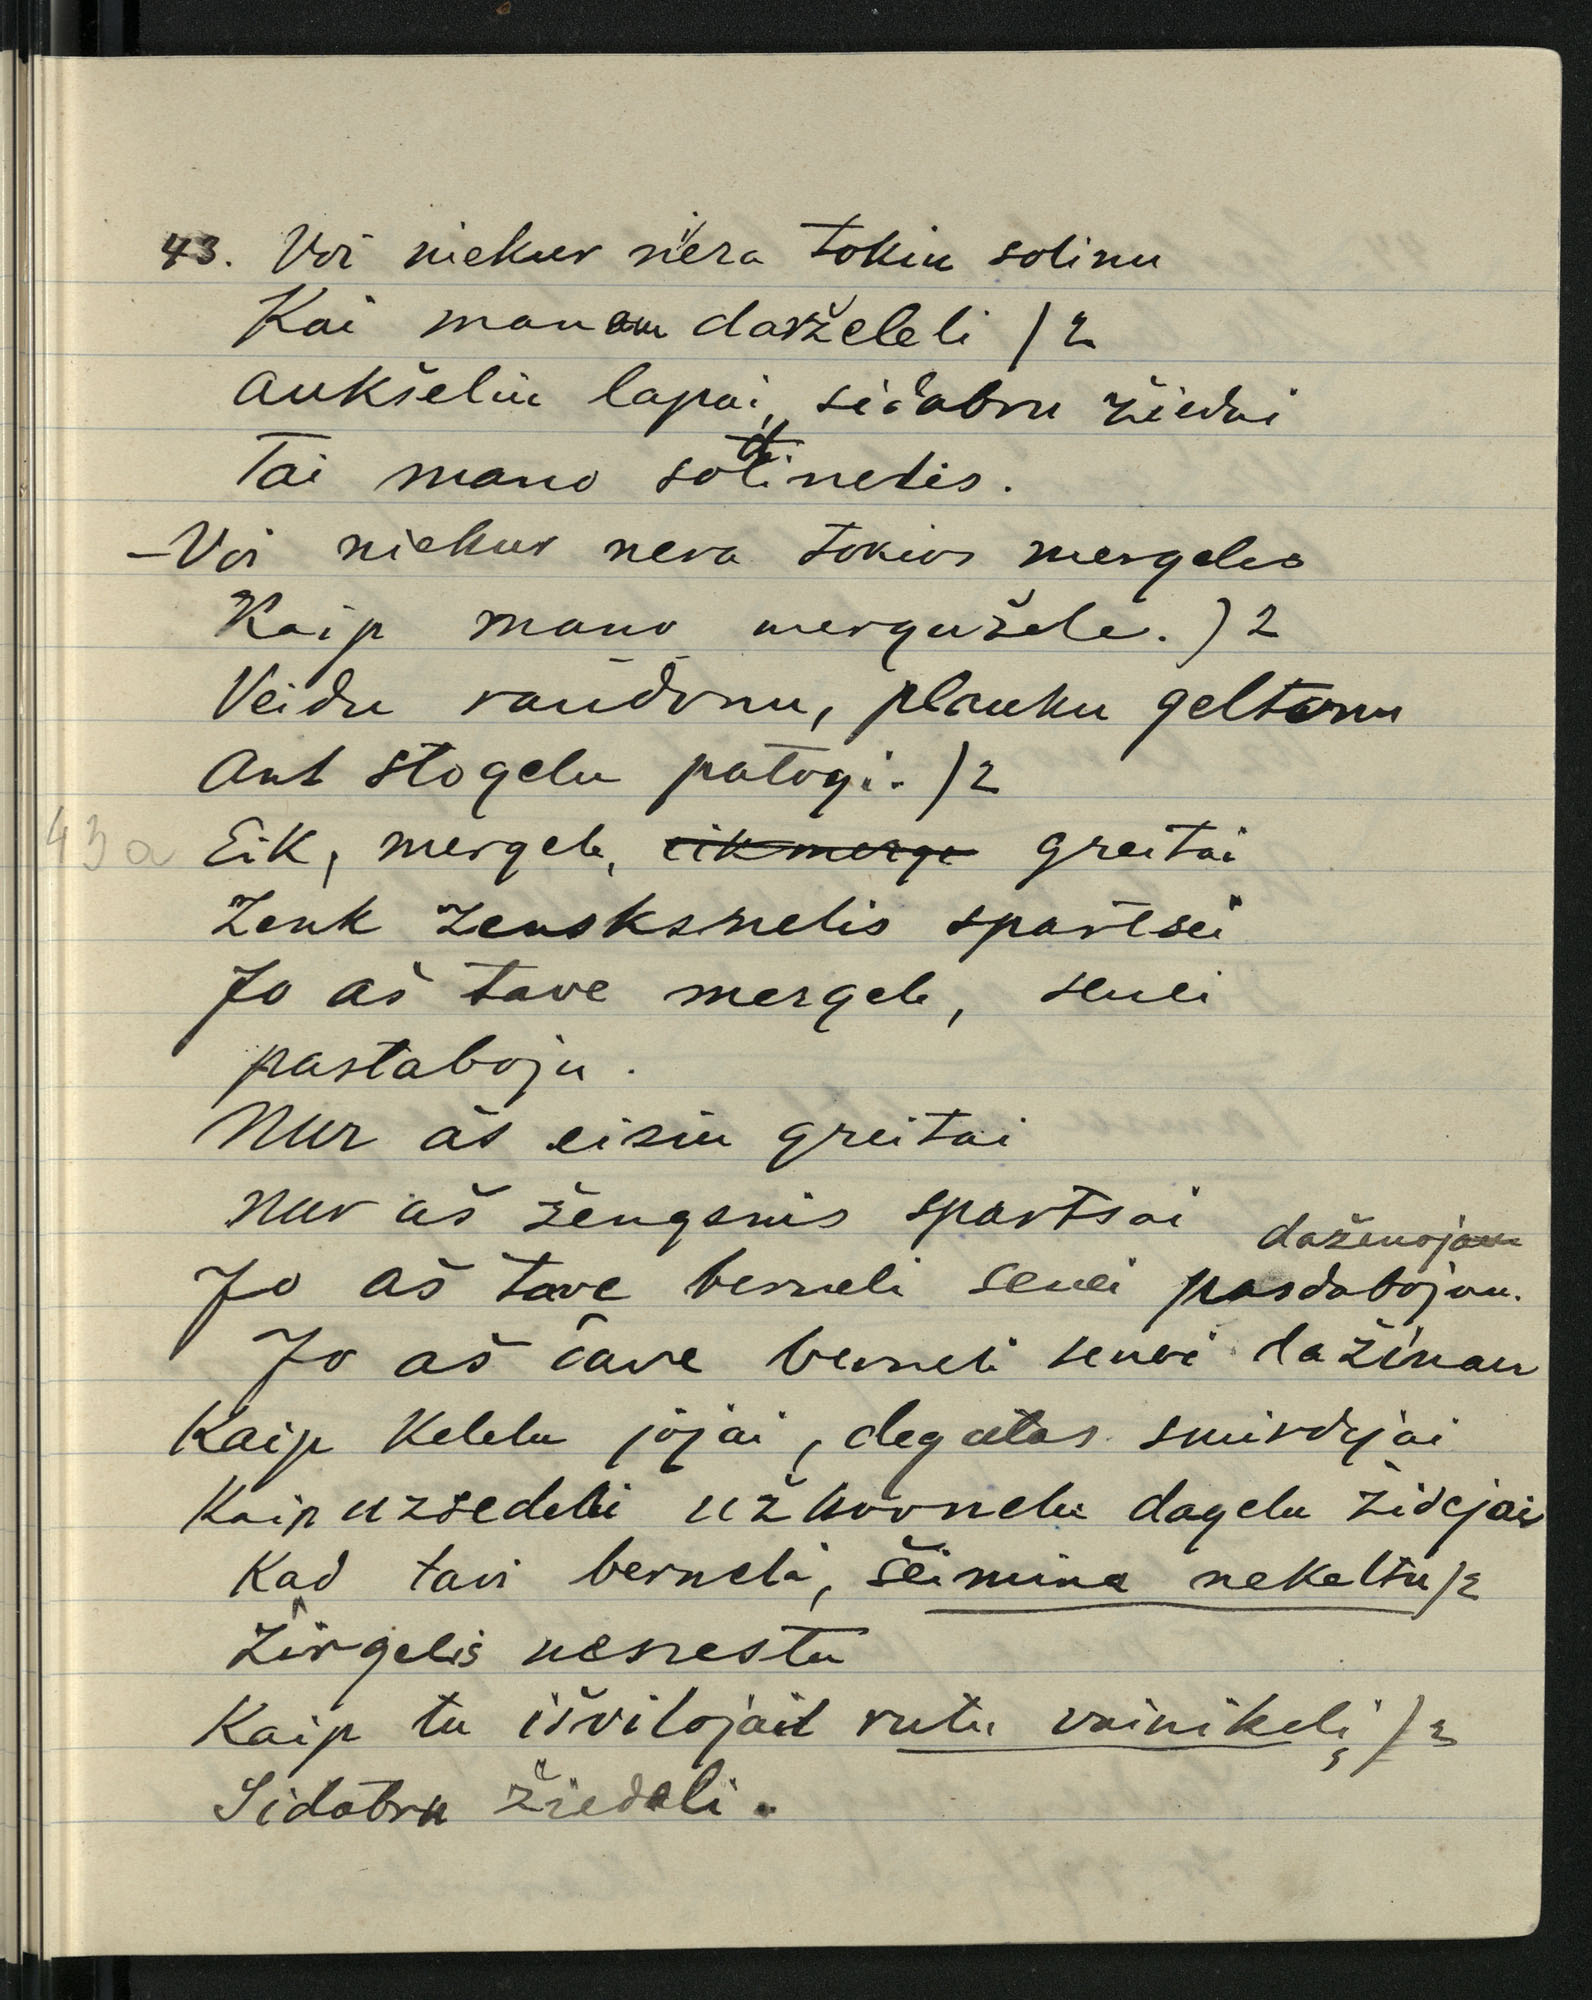 43. Voi niekur nėra tokiu solinu
Kai manam darželeli )2
aukšeliu lapai, sidabru žiedai
Tai mano solinelis.
– Voi niekur nera tokios mergeles
Kaip mano mergužele. )2
Veidu raudonu, plauku geltonu
Ant stogelu patogi. )2
43a Eik, mergele, eik merge greitai
Zenk zensksnelis spartsei
Jo aš tave mergele, senei
pastaboju.
Nur aš eisiu greitai
nur aš žengsnis spartsai
daženojau
Jo aš tave berneli senei pasdabojau.
Jo aš tave berneli senei dažinau
Kaip kelelu jojai, degutas smirdejai
Kaip uzsedeli už stonelu dagelu židejai
Kad tavi berneli, šeimina nekeltu )2
Žirgelis nesnestu
Kaip tu išvilojait rutu vainikeli, )2
Sidabru žiedeli.